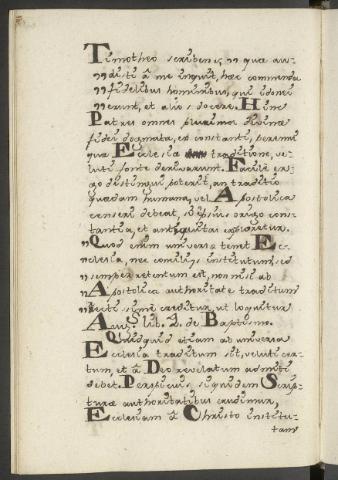 Timotheo scribens: „ quæ au-
„ disti â me inquit, hæc commenda
„ fidelibus hominibus, qui idonei
„ erunt, et alios docere. Hinc
Patres omnes plurima divina
fidei dogmata, ex constanti, perenni
que Ecclesia traditione, ve-
luti fonte derivarunt. Facile er-
go distingui poterit, an traditio
quædam humana, vel Apostolica
censeri debeat, si ipsius origo cons-
tantia, et antiquitas exploretur.
„ Quod enim universa tenet Ec-
clesia, nec concilijs institutum, sed
„ semper retentum est, non nisi ab
„ Apostolica authoritate traditum
„ rectissime creditur, ut loquitur
Aug. lib. 2. de Baptismo.
Quidquid etiam ab universa
Ecclesia traditum sit, veluti cer-
tum, et â Deo revelatum admitti
debet. Perspicuis siquidem Scrip-
turæ authoritatibus erudimur,
Ecclesiam â Christo institu-
tam